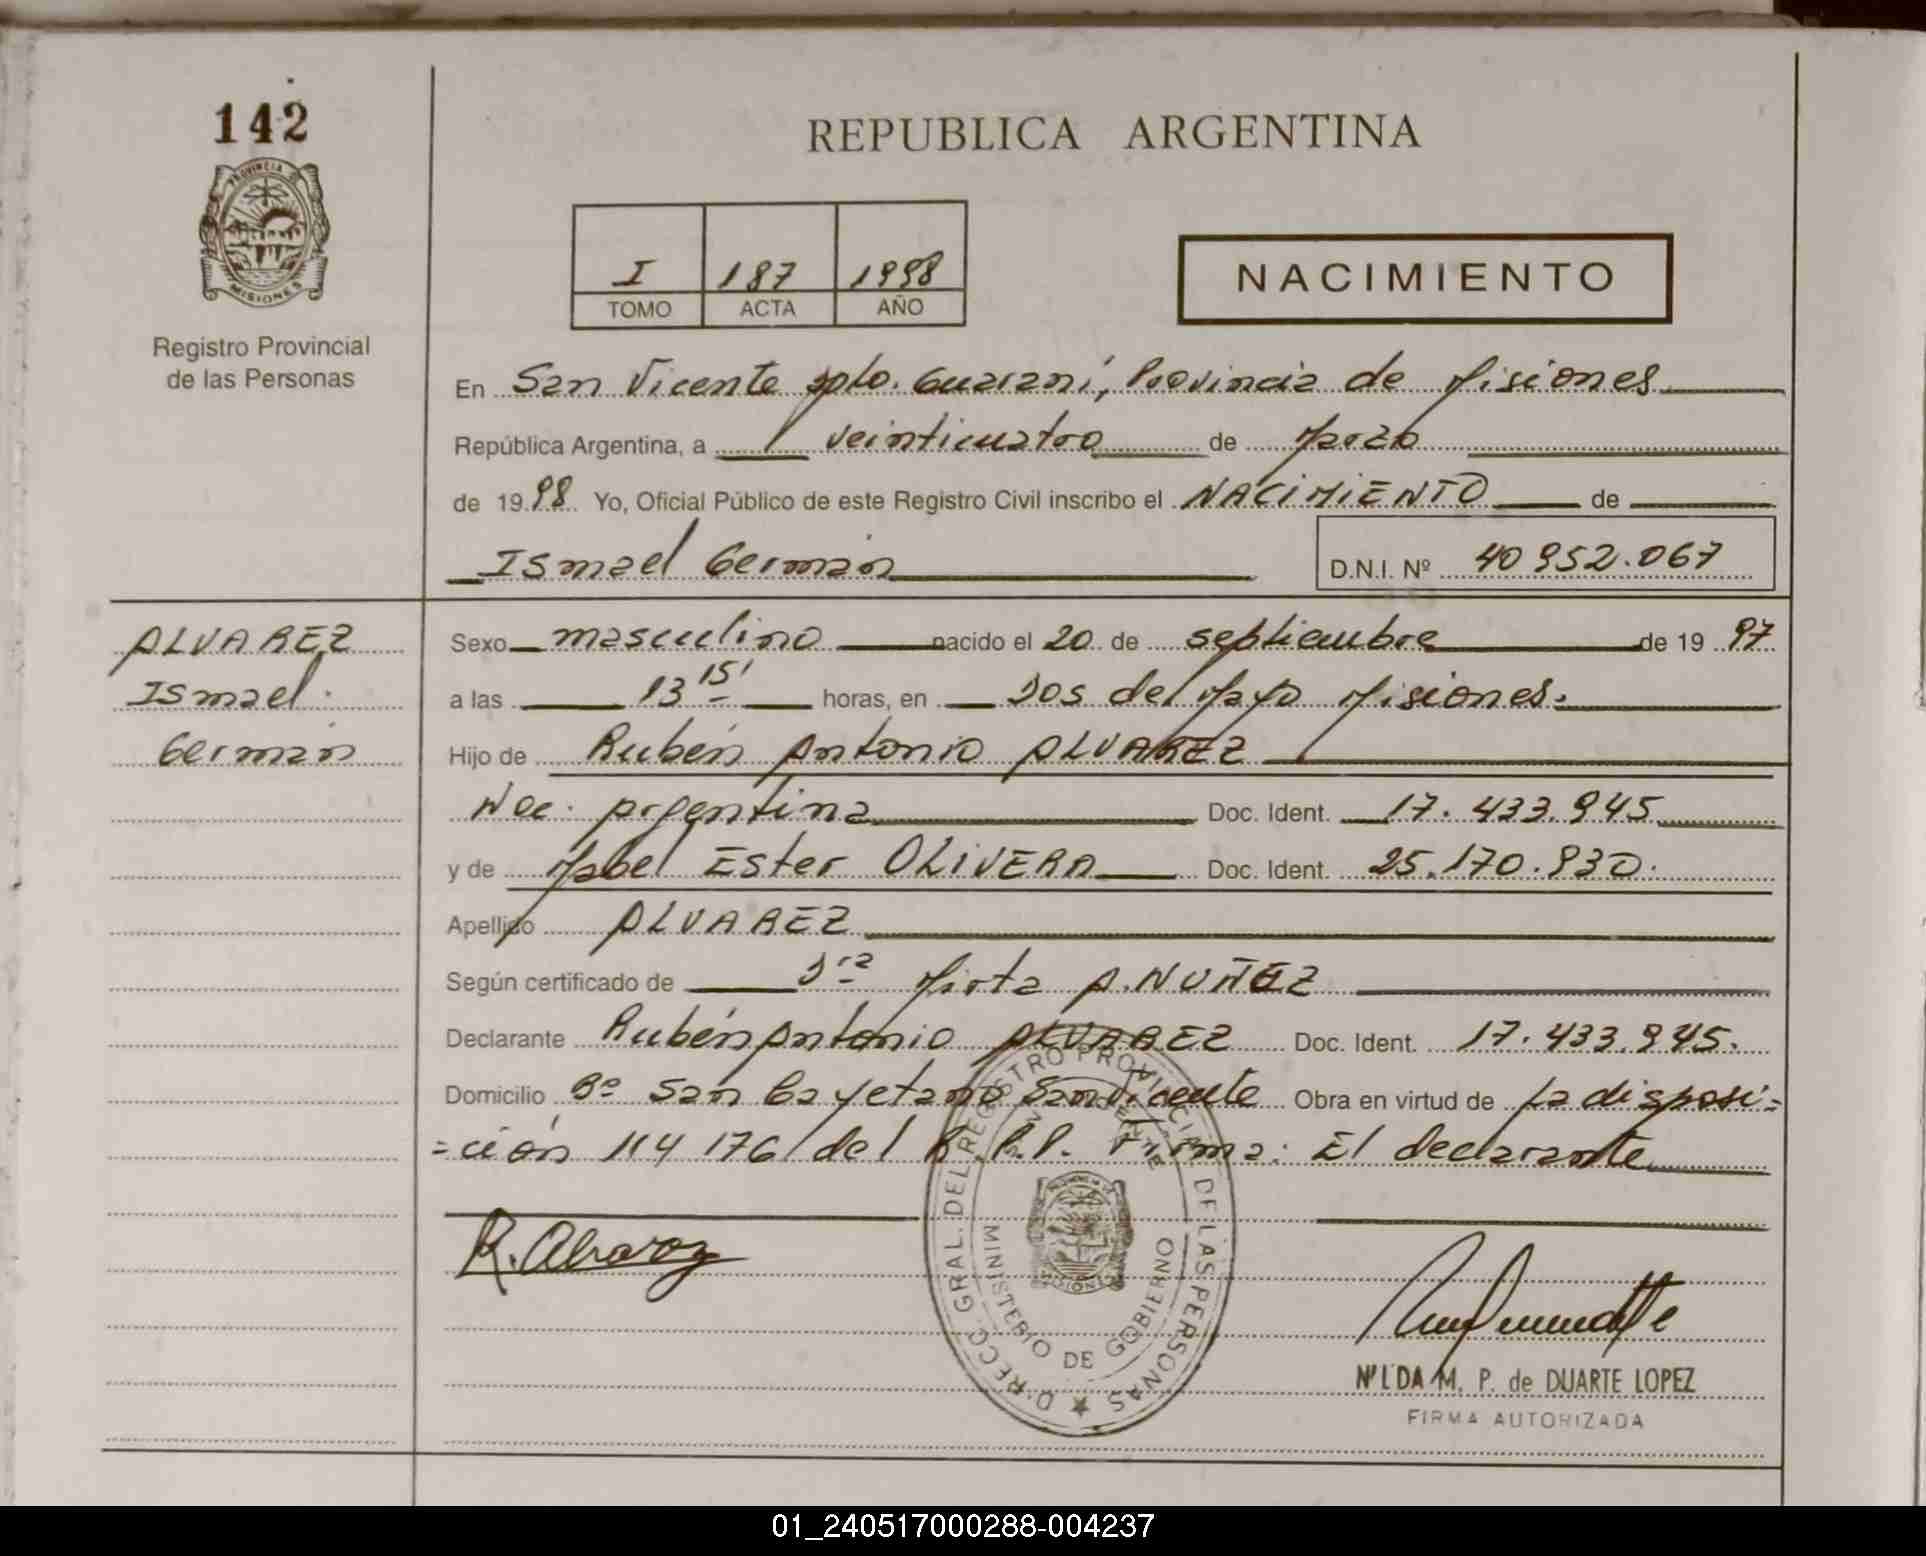 142
PROVINCIA DE
MISIONES
Registro Provincial
de las Personas
REPUBLICA ARGENTINA
I 187 1998
TOMO ACTA AÑO
NACIMIENTO
En San Vicente Dpto. Guaraní, Provincia de Misiones
República Argentina, a veinticuatro de Marzo
de 1998 Yo, Oficial Público de este Registro Civil inscribo el NACIMIENTO de
Ismael Germán D.N.I. Nº 40 952.067
ALVAREZ
Ismael
Germán
Sexo masculino nacido el 20 de septiembre de 1997
a las 13 15' horas, en Dos de Mayo Misiones.
Hijo de Rubén Antonio ALVAREZ
Nac. Argentina Doc. Ident. 17.433.945
y de Mabel Ester OLIVERA Doc. Ident. 25.170.830.
Apellido ALVAREZ
Según certificado de Dra Mirta A. NUÑEZ
Declarante Rubén Antonio ALVAREZ Doc. Ident. 17.433.945.
Domicilio Bº San Cayetano San Vicente Obra en virtud de La disposi=
=ción 114 176 del R.P.P. Firma: El declarante
R. Alvarez
DIRECC. GRAL. DEL REGISTRO PROVINCIAL DE LAS PERSONAS
SAN VICENTE
MISIONES
MINISTERIO DE GOBIERNO
NILDA M. P. de DUARTE LOPEZ
FIRMA AUTORIZADA
01_240517000288-004237